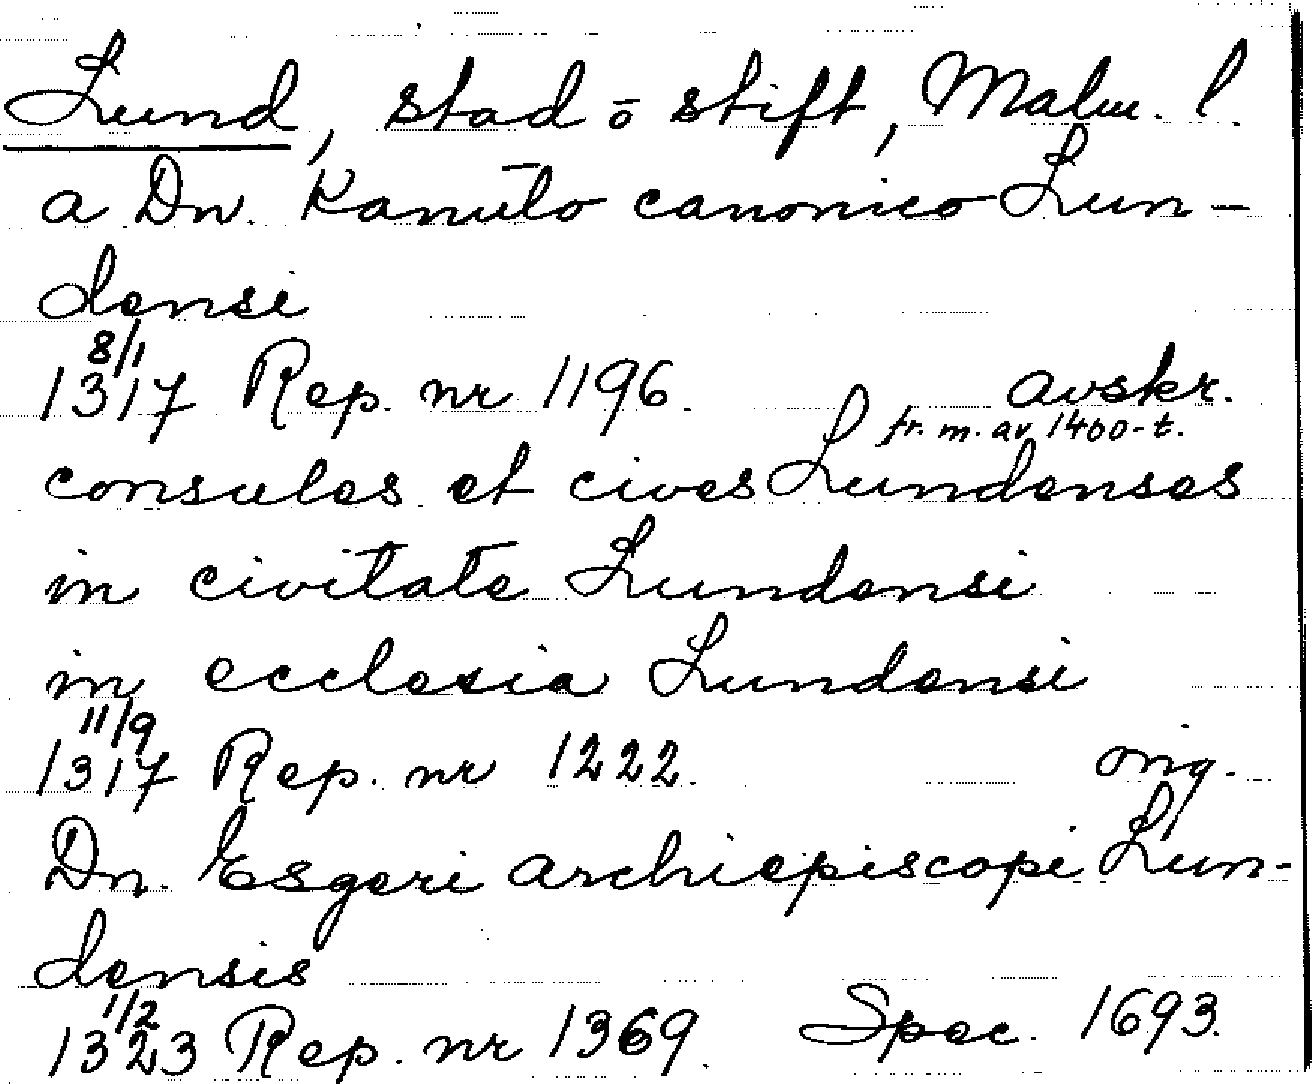 Lund, stad ō stift, Malm. l.
a Dn. Kanuto canonico Lun-
densi
8/1
1317 Rep. nr 1196. avskr.
fr. m. av 1400-t.
consules et cives Lundenses
in civitate Lundensi
in ecclesia Lundensi
11/9
1317 Rep. nr 1222. orig.
Dn. Esgeri archiepiscopi Lun-
densis
1/2
1323 Rep. nr 1369. Spec. 1693.